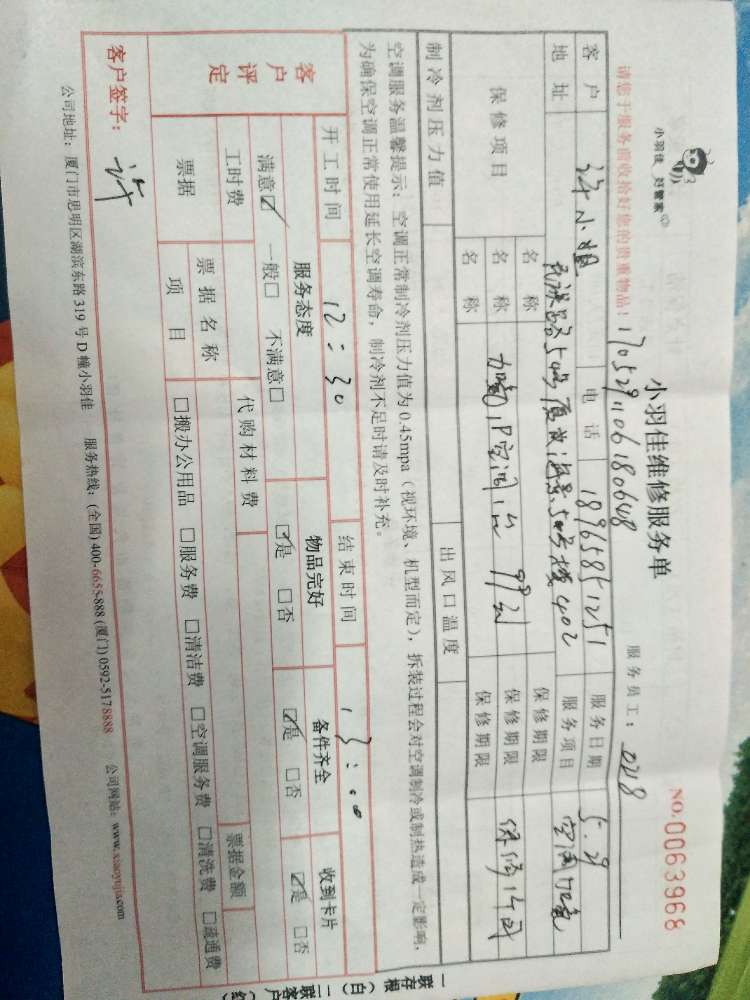 小羽佳 好管家
小羽佳维修服务单
NO.0063968
请您于服务前收拾好您的贵重物品！
1705291106180648
服务员工： 0218
客户 许小姐 电话 18965851251 服务日期 5.29
地址 5号 海景 5号楼402 服务项目 空调加氟
保修项目 名称 保修期限
名称 加氟 1P空调 保修期限
名称 保修期限
制冷剂压力值 出风口温度
空调服务温馨提示：空调正常制冷剂压力值为0.45mpa（视环境、机型而定），拆装过程会对空调制冷或制热造成一定影响，
为确保空调正常使用延长空调寿命，制冷剂不足时请及时补充。
开工时间 12:30 结束时间 13:00
客户评定 服务态度 物品完好 备件齐全 收到卡片
满意☑ 一般☐ 不满意☐ ☑是 ☐否 ☑是 ☐否 ☑是 ☐否
工时费 代购材料费
票据 票据名称 票据金额
项目 ☐搬办公用品 ☐服务费 ☐清洁费 ☐空调服务费 ☐清洗费 ☐疏通费
客户签字： 许
公司地址：厦门市思明区湖滨东路319号D幢小羽佳 服务热线：(全国)400-6655-888 (厦门)0592-5178888 公司网站：www.xiaoyujia.com
一联存根（白）二联客户（红